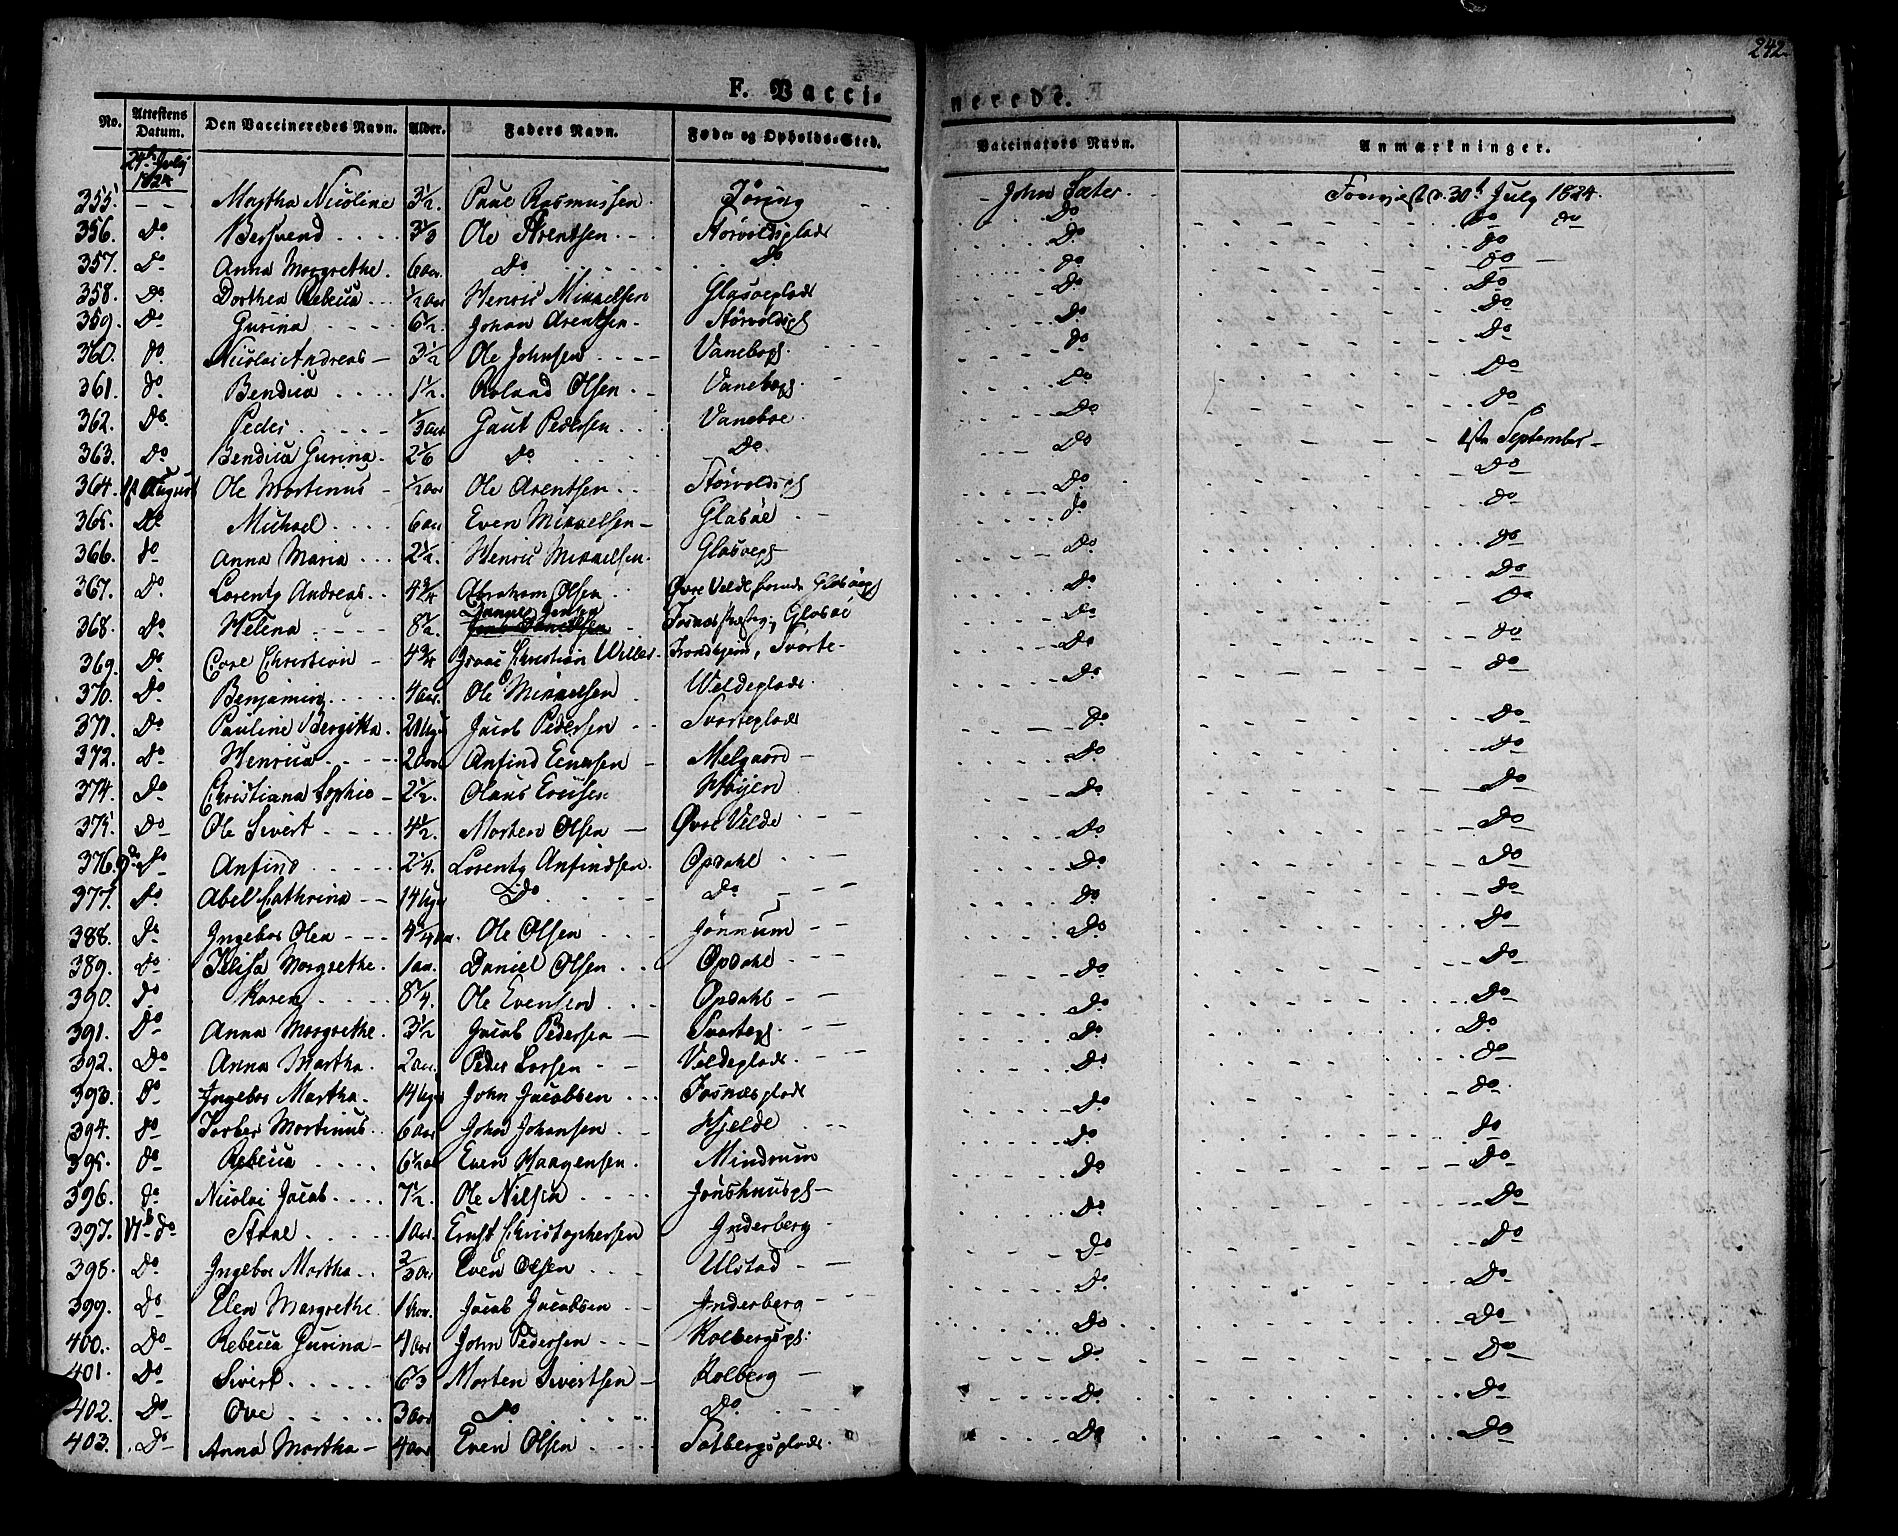 242
F. Vacci-
nerede.
No. Attestens Datum. Den Vaccineredes Navn. Alder. Faders Navn. Føde- og Opholds-Sted. Vaccinators Navn. Anmærkninger.
24de July 1824
355. - - Martha Nicoline 3 1/2. Paul Rasmussen. Jøring John Sæter. 30te July 1824.
356. Do Bersvend 3 1/3 Ole Arentsen Størvoldsplads Do Do Do
357. Do Anna Margrethe. 6 aar. Do Do Do Do
358. Do Dorthea Rebecca 1/2 aar Henric Mikkelsen Glasøeplads Do Do
359. Do Gurina 6 1/2. Johan Arentsen Størvoldspl Do Do
360. Do Nicolai Andreas 3 1/2 Ole Johnsen Vanebopl. Do Do
361. Do Bendica 1 1/2. Roland Olsen Vanebopl Do Do
362. Do Peder 1/3 aar Gaut Pedersen Vaneboe Do Do
363. Do Bendica Gurina 2 1/6 Do Do Do 1ste September
364. August Ole Martinus 1/2 aar Ole Arentsen Størvoldspl Do Do
365. Do Michael 6 aar Even Mikkelsen Glasøe Do Do
366. Do Anna Maria 2 1/2. Henric Mikkelsen Glasøepl Do Do
367. Do Lorentz Andreas 4 3/4 Abraham Olsen Øvre Velde, Glasøepl Do Do
368. Do Helena 8 1/2. Jensen Glasøe Do Do
369. Do Christian 4 3/4 Isaac Christian Willer Trondhjem, Svorte- Do Do
370. Do Benjamin 4 aar. Ole Mikkelsen Veldeplads Do Do
371. Do Pauline Bergitta. 20 Uger Jacob Pedersen Svorteplads Do Do
372. Do Henrica 2 aar Anfind Einersen Melgaard Do Do
374. Do Christiana Sophie 2 1/2. Olaus Ericsen Høyen Do Do
375. Do Ole Sivert 4 1/2. Morten Olsen Øvre Velde Do Do
376. Do Anfind 2 1/4. Lorentz Anfindsen. Opdahl Do Do
377. Do Abel Cathrina 14 Uger Do Do Do Do
388. Do Ingebor Olea 4 1/4 aar. Ole Olsen Jønnum Do Do
389. Do Elisa Margrethe. 1 aar. Daniel Olsen Opdahl Do Do
390. Do Karen 8 1/4. Ole Evensen Opdahl Do Do
391. Do Anna Margrethe. 3 1/2 Jacob Pedersen Svortepl. Do Do
392. Do Anna Martha. 2 aar. Peder Larsen Veldeplads Do Do
393. Do Ingebor Martha. 14 Uger John Jacobsen Fosnæsplads Do Do
394. Do Torber Martinus 6 aar John Johansen Hjelde Do Do
395. Do Rebecca 6 1/2 aar Even Haagensen. Mindrum Do Do
396. Do Nicolai Jacob 7 1/2. Ole Nilsen Do Do
397. 17de do 1 aar Ernst Christophersen Inderberg Do Do
398. Do Ingebor Martha 2/3 aar Even Olsen Ulstad Do Do
399. Do Elen Margrethe. Jacob Jacobsen Inderberg Do Do
400. Do Rebecca Gurina 4 aar John Pedersen Kolbergspl: Do Do
401. Do Sivert 6 1/3 Morten Sivertsen Kolberg Do Do
402. Do Ove 3 aar Do Do Do Do
403. Do Anna Martha 4 aar Even Olsen Solbergsplads. Do Do